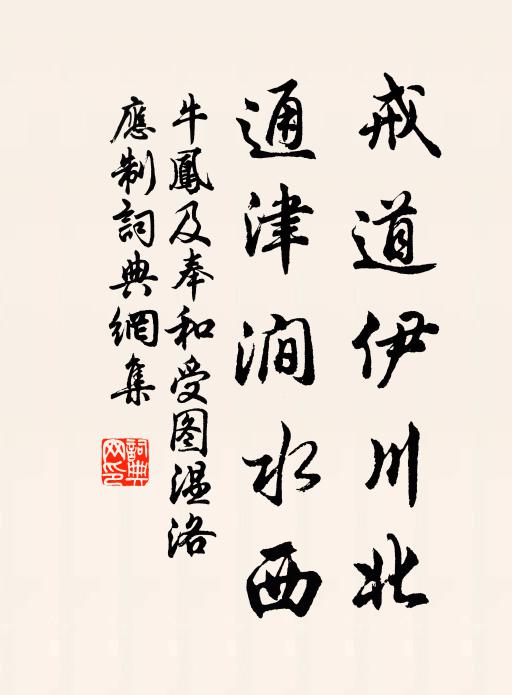 戒道伊川北
通津澗水西
牛鳳及奉和受图温洛
應制詞典網集
詞典網印